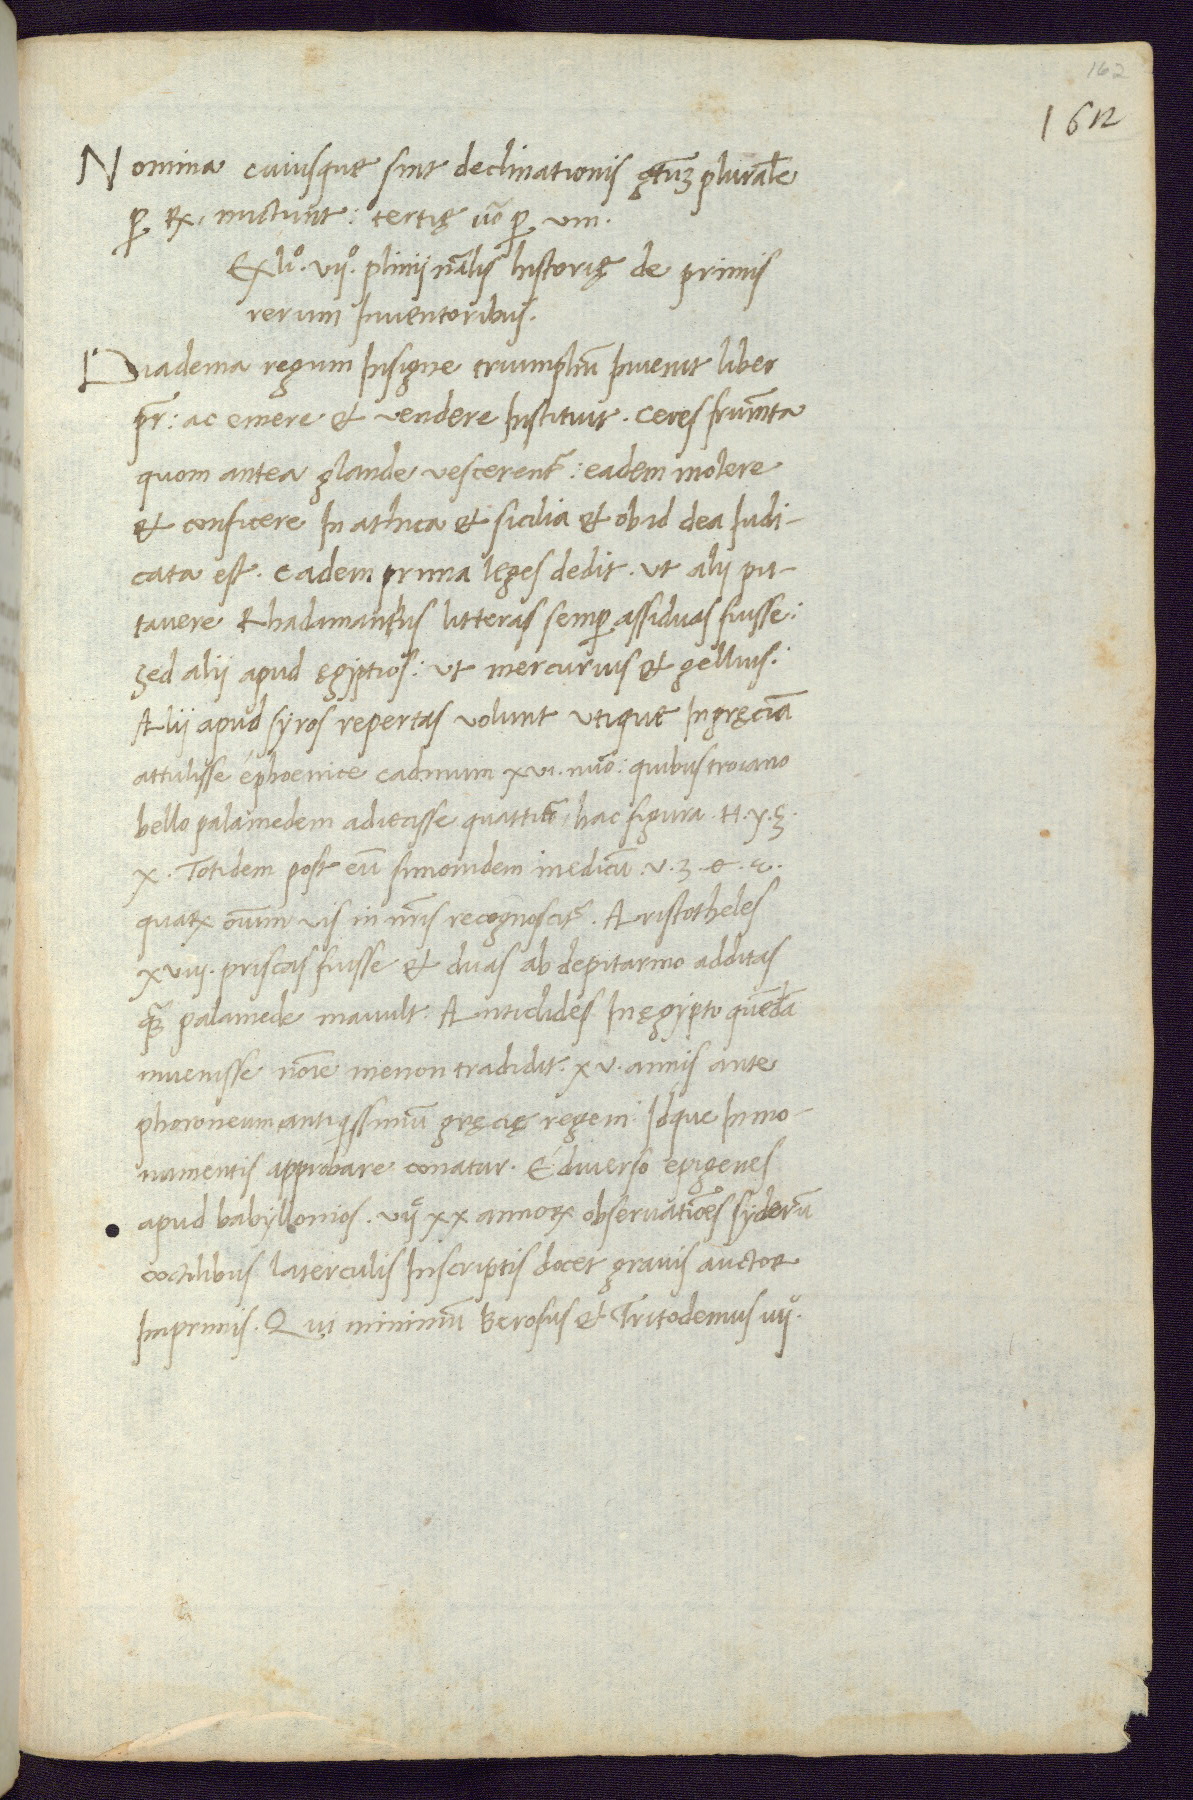 162
162
Nomina cuiusque sint declinationis gtūm pluralē
ꝑ ꝶ. mictunt: tertię ūo ꝑ um.
Ex liº. viiº. plinij nālis historię de primis
rerum Inuentoribus.
Diadema regum Insigne triumphū Inuenit liber
pr̄: ac emere et vendere Instituit. Ceres frum̄ta
quom antea glande vescerent᷑: eadem molere
et conficere In athica et sicilia et ob id dea Iudi-
cata est. eadem prima leges dedit. ut alii put-
tauere Rhadamanthus litteras semꝑ assiduas fuisse:
sed alii apud ęgiptios: ut mercurius et gellius:
Alii apud syros repertas volunt utique In gręciā
attulisse é phoenice cadmum xvi. nūo: quibus troiano
bello palamedem adiecasse quattuor hac figura. H. y. ξ.
X. Totidem post eū simonidem medicū. v. ʒ. o. ε.
quaꝝ oīum vis in nr̄is recognoscit᷑. Aristotheles
xviij. priscas fuisse et duas ab depitarmo additas
quā palamede mauult. Anticlides In ęgypto quēdā
inuenisse noīe menon tradidit. xv. annis ante
phoroneum antiqssimū gręcię regem: Idque In mo-
numentis approbare conatur. É diuerso epigenes
apud babyllonios. vij xx annoꝝ obseruatioēs syderū
coctilibus laterculis Inscriptis docet grauis auctor
Imprimis. Qui minimū Berosus et Tritodemus iiij.